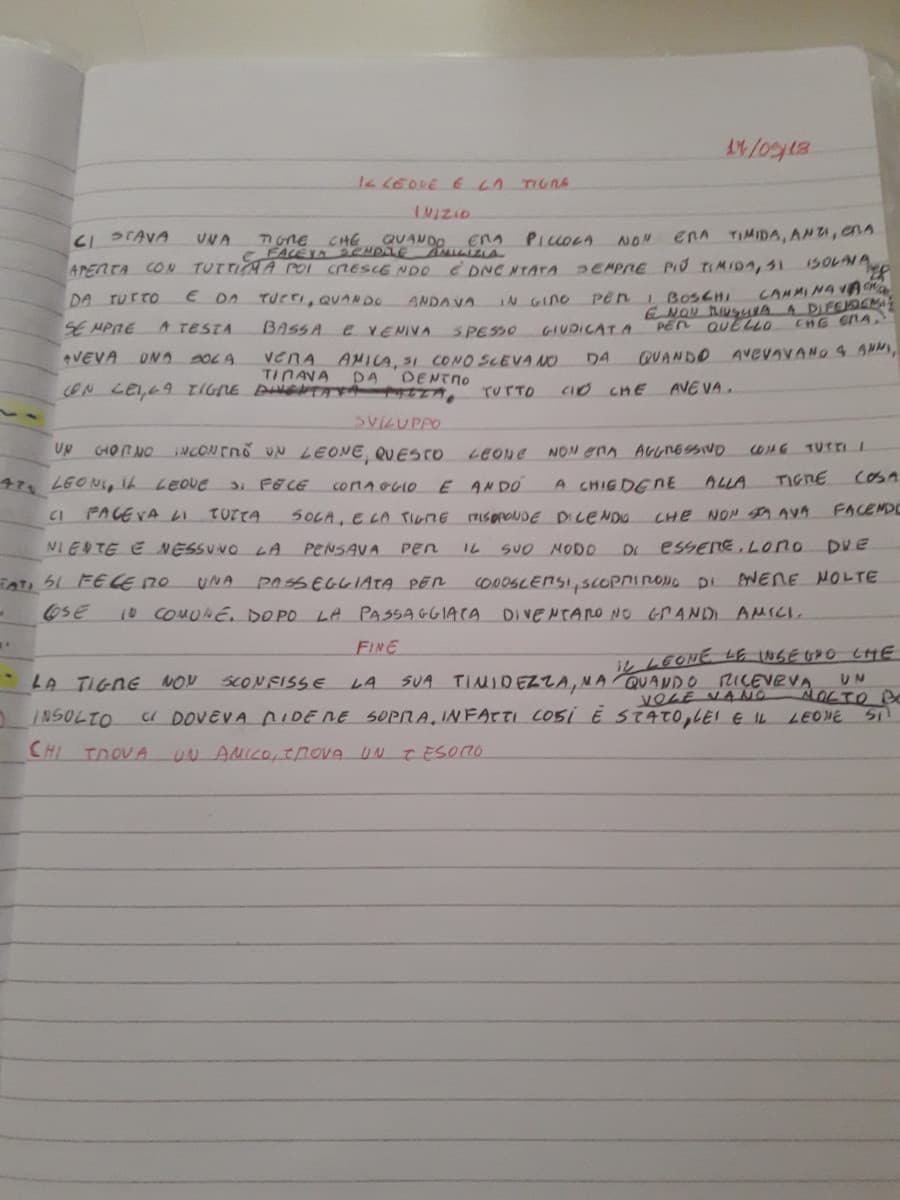 17/09/18
IL LEONE E LA TIGRE
INIZIO
CI STAVA UNA TIGRE CHE QUANDO ERA PICCOLA NON ERA TIMIDA, ANZI, ERA
E FACEVA SEMPRE AMICIZIA
APERTA CON TUTTI MA POI CRESCENDO É DIVENTATA SEMPRE PIÚ TIMIDA, SI ISOLAVA
DA TUTTO E DA TUTTI, QUANDO ANDAVA IN GIRO PER I BOSCHI CAMMINAVA
E NON RIUSCIVA A DIFENDERSI
SEMPRE A TESTA BASSA E VENIVA SPESSO GIUDICATA PER QUELLO CHE ERA.
AVEVA UNA SOLA VERA AMICA, SI CONOSCEVANO DA QUANDO AVEVAVANO ANNI,
TIRAVA DA DENTRO
CON LEI, LA TIGRE TUTTO CIÓ CHE AVEVA.
SVILUPPO
UN GIORNO INCONTRÓ UN LEONE, QUESTO LEONE NON ERA AGGRESSIVO COME TUTTI I
LEONI, IL LEONE SI FECE CORAGGIO E ANDÓ A CHIEDERE ALLA TIGRE COSA
CI FACEVA LI TUTTA SOLA, E LA TIGRE RISPONDE DICENDO CHE NON STAVA FACENDO
NIENTE E NESSUNO LA PENSAVA PER IL SUO MODO DI ESSERE. LORO DUE
SI FECERO UNA PASSEGGIATA PER CONOSCERSI, SCOPRIRONO DI AVERE MOLTE
COSE IN COMUNE. DOPO LA PASSAGGIATA DIVENTARONO GRANDI AMICI.
FINE
IL LEONE LE INSEGNO CHE
LA TIGRE NON SCONFISSE LA SUA TIMIDEZZA, MA QUANDO RICEVEVA UN
VOLEVANO MOLTO
INSOLTO CI DOVEVA RIDERE SOPRA, INFATTI COSÍ É STATO, LEI E IL LEONE SI
CHI TROVA UN AMICO, TROVA UN TESORO